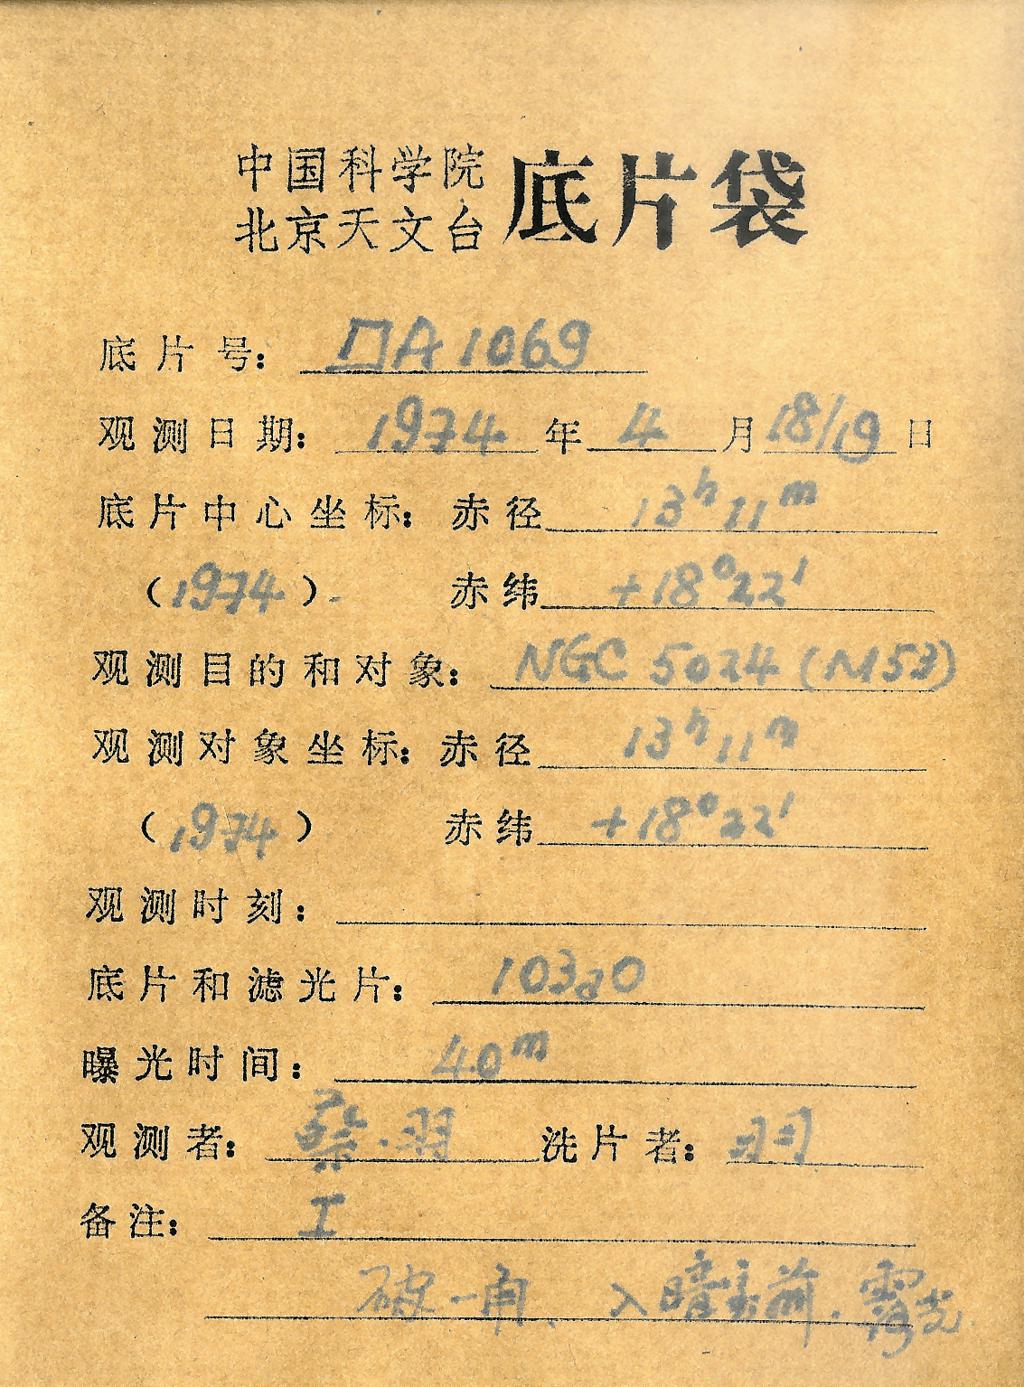 中国科学院
北京天文台 底片袋
底片号: A1069
观测日期: 1974 年 4 月 18/19 日
底片中心坐标: 赤径 13ʰ11ᵐ
(1974) 赤纬 +18°22′
观测目的和对象: NGC 5024 (M53)
观测对象坐标: 赤径 13ʰ11ᵐ
(1974) 赤纬 +18°22′
观测时刻:
底片和滤光片: 103aO
曝光时间: 40ᵐ
观测者: 蔡.羽 洗片者: 羽
备注: I
破一角、入暗室前.露光